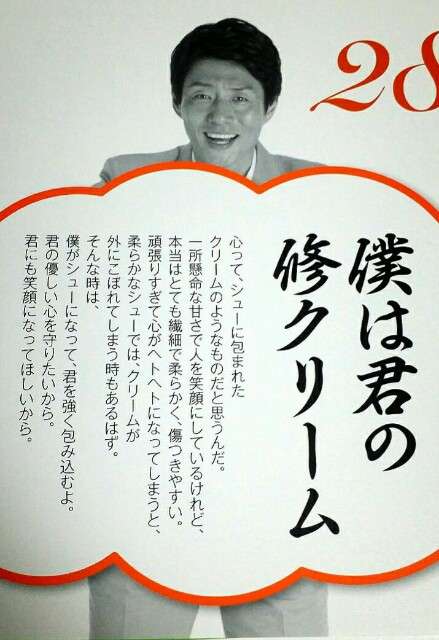 28
僕は君の
修クリーム
心って、シューに包まれた
クリームのようなものだと思うんだ。
一所懸命な甘さで人を笑顔にしているけれど、
本当はとても繊細で柔らかく、傷つきやすい。
頑張りすぎて心がヘトヘトになってしまうと、
柔らかなシューでは、クリームが
外にこぼれてしまう時もあるはず。
そんな時は、
僕がシューになって、君を強く包み込むよ。
君の優しい心を守りたいから。
君にも笑顔になってほしいから。